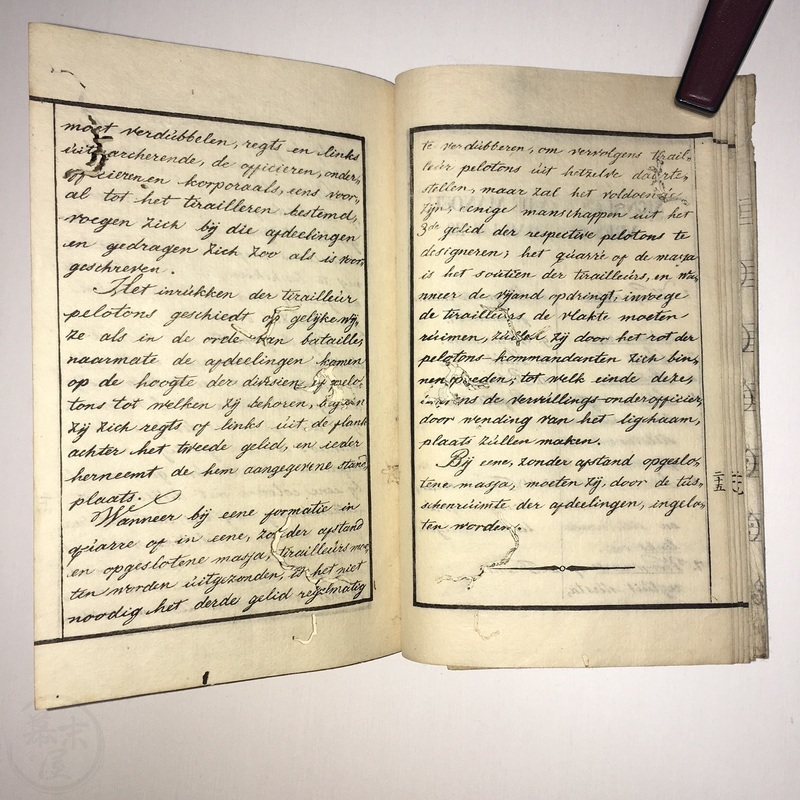 moet verdúbbelen, regts en links
úitmarcherende, de officieren, onder„
officieren en korporaals, eens voor„
al tot het tirailleren bestemd,
voegen zich bij die afdeelingen
en gedragen zich zoo als is voor„
geschreven.
Het inrúkken der tirailleúr
pelotons geschiedt op gelijke wij„
ze als in de orde van bataille,
naarmate de afdeelingen komen
op de hoogte der divisien of pelo„
tons tot welken zij behooren, begeven
zij zich regts of links úit de flank
achter het tweede gelid, en ieder
herneemt de hem aangegevene stand„
plaats.
Wanneer bij eene formatie in
qúarre of in eene, zonder afstand
en opgeslotene massa, tirailleúrs moe„
ten worden úitgezonden, is het niet
noodig het derde gelid regelmatig
te verdúbberen, om vervolgens tirail„
leúr pelotons úit hetzelve daarte„
stellen, maar zal het voldoende
zijn, eenige manschappen úit het
3de gelid der respective pelotons te
designeren; het qúarre of de massa
is het soútien der tirailleúrs, en wa„
nneer de vijand opdringt, invoege
de tirailleúrs de vlakte moeten
rúimen, zúllen zij door het rot der
pelotons-kommandanten zich bin„
nen spoeden, tot welk einde deze,
de vervúllings-onderofficier,
door wending van het ligchaam,
plaats zúllen maken.
Bij eene, zonder afstand opgeslo„
tene massa, moeten zij, door de tús„
schenrúimte der afdeelingen, ingelo„
ten worden.
二十五